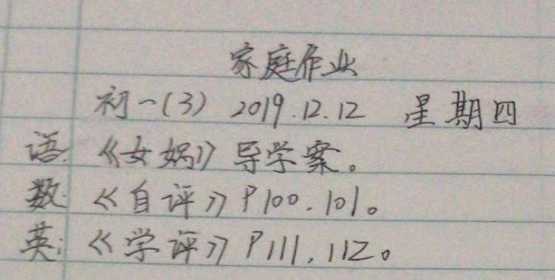 家庭作业
初一(3) 2019.12.12 星期四
语:《女娲》导学案。
数:《自评》P100.101。
英:《学评》P111.112。